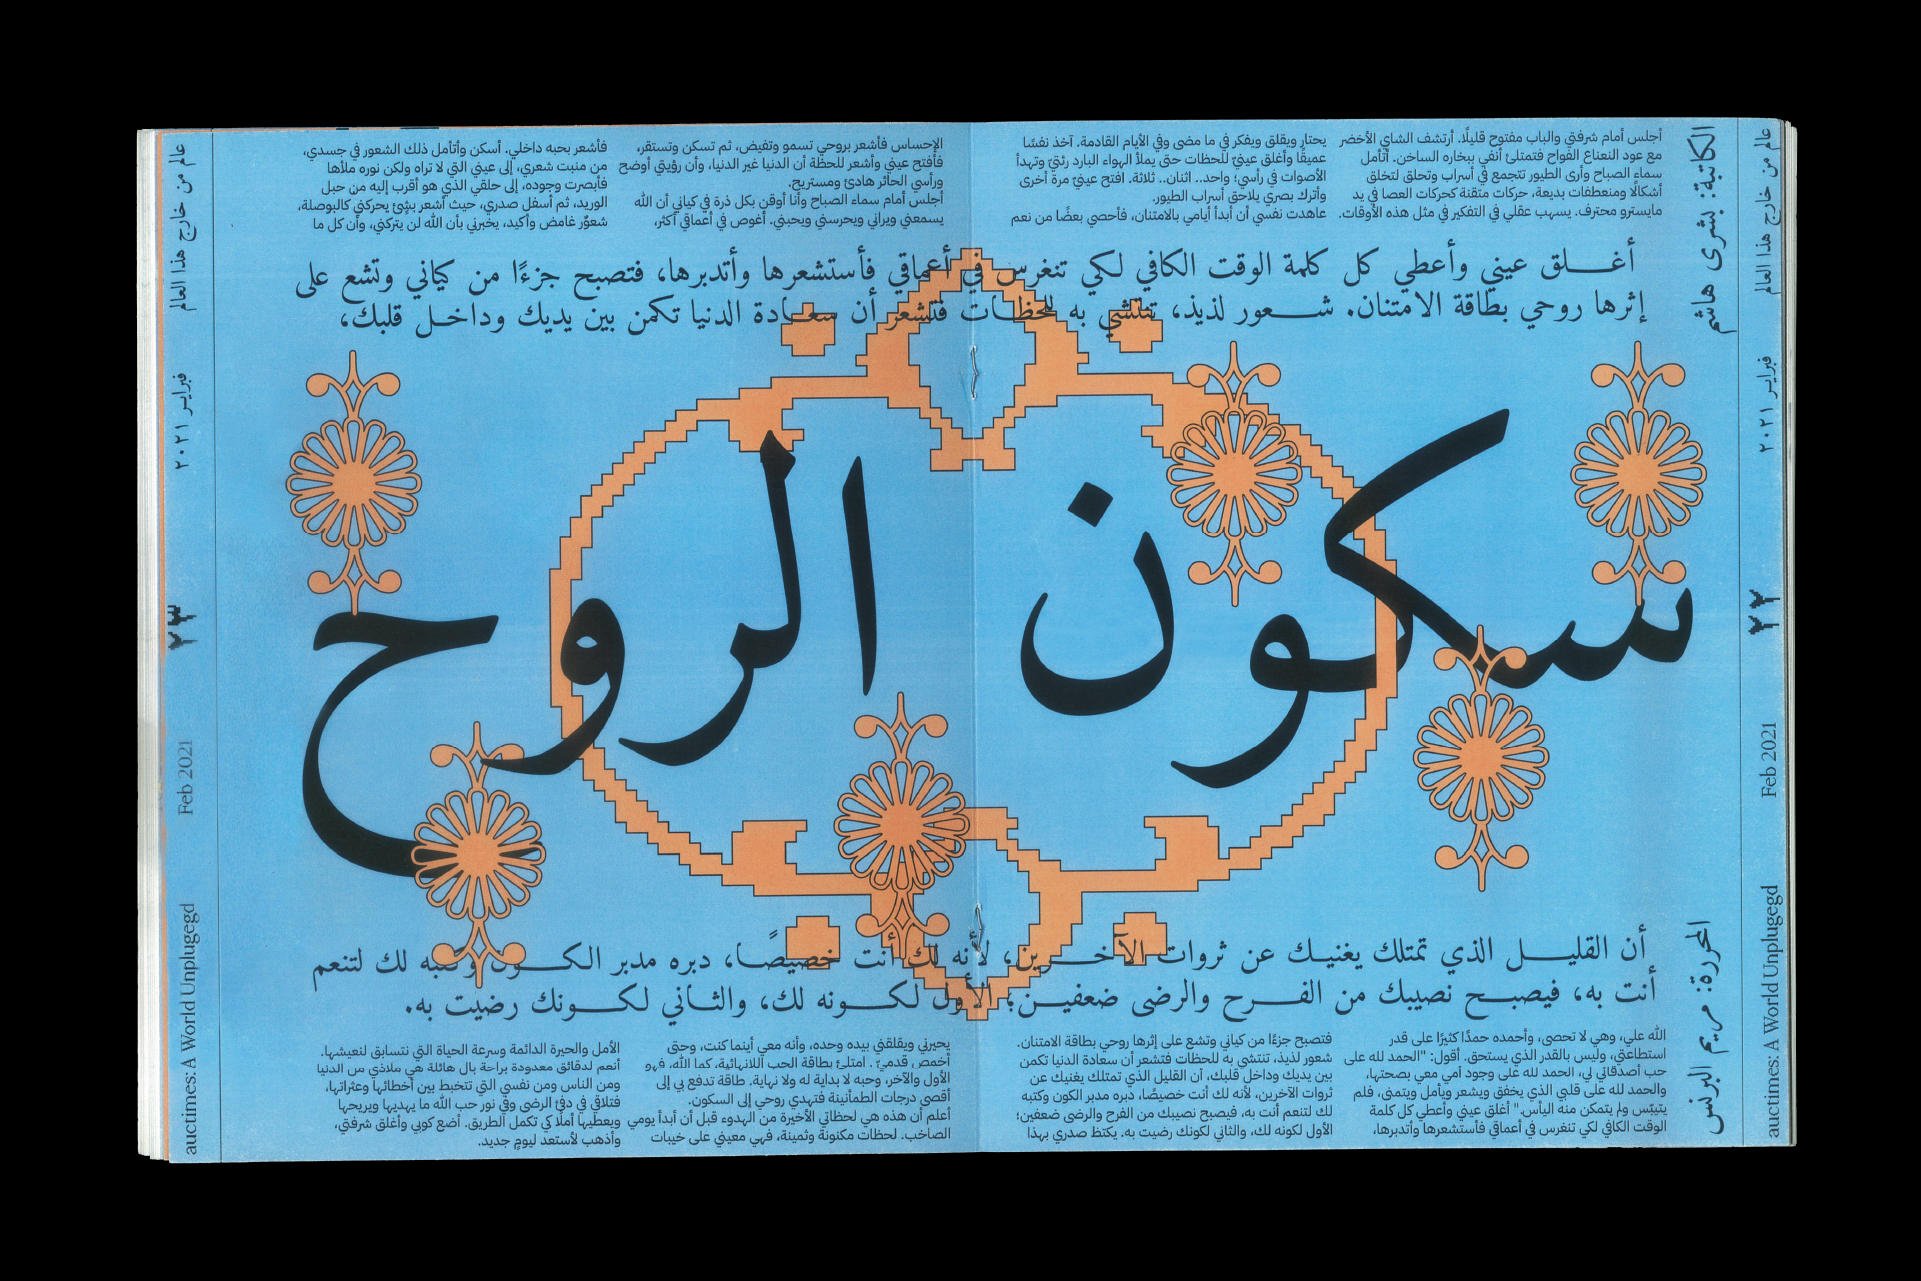 عالم من خارج هذا العالم
فبراير ٢٠٢١
٢٢
Feb 2021
auctimes: A World Unplugegd
الكاتبة: بشرى هاشم
المحررة: مريم البرنس
أجلس أمام شرفتي والباب مفتوح قليلًا. أرتشف الشاي الأخضر
مع عود النعناع الفواح فتمتلئ أنفي ببخاره الساخن. أتأمل
سماء الصباح وأرى الطيور تتجمع في أسراب وتحلق لتخلق
أشكالًا ومنعطفات بديعة، حركات متقنة كحركات العصا في يد
مايسترو محترف. يسهب عقلي في التفكير في مثل هذه الأوقات.
يحتار ويقلق ويفكر في ما مضى وفي الأيام القادمة. آخذ نفسًا
عميقًا وأغلق عينيّ للحظات حتى يملأ الهواء البارد رئتيّ وتهدأ
الأصوات في رأسي؛ واحد.. اثنان.. ثلاثة. افتح عينيّ مرة أخرى
وأترك بصري يلاحق أسراب الطيور.
عاهدت نفسي أن أبدأ أيامي بالامتنان، فأحصي بعضًا من نعم
الإحساس فأشعر بروحي تسمو وتفيض، ثم تسكن وتستقر،
فأفتح عيني وأشعر للحظة أن الدنيا غير الدنيا، وأن رؤيتي أوضح
ورأسي الحائر هادئ ومستريح.
أجلس أمام سماء الصباح وأنا أوقن بكل ذرة في كياني أن الله
يسمعني ويراني ويحرسني ويحبني. أغوص في أعماقي أكثر،
فأشعر بحبه داخلي. أسكن وأتأمل ذلك الشعور في جسدي،
من منبت شعري، إلى عيني التي لا تراه ولكن نوره ملأها
فأبصرت وجوده، إلى حلقي الذي هو أقرب إليه من حبل
الوريد، ثم أسفل صدري، حيث أشعر بشئ يحركني كالبوصلة،
شعورٌ غامض وأكيد، يخبرني بأن الله لن يتركني، وأن كل ما
أغلق عيني وأعطي كل كلمة الوقت الكافي لكي تنغرس في أعماقي فأستشعرها وأتدبرها، فتصبح جزءًا من كياني وتشع على
إثرها روحي بطاقة الامتنان. شعور لذيذ، تنتشي به للحظات فتشعر أن سعادة الدنيا تكمن بين يديك وداخل قلبك،
سكون الروح
أن القليل الذي تمتلك يغنيك عن ثروات الآخرين، لأنه لك أنت خصيصًا، دبره مدبر الكون وكتبه لك لتنعم
أنت به، فيصبح نصيبك من الفرح والرضى ضعفين؛ الأول لكونه لك، والثاني لكونك رضيت به.
الله علي، وهي لا تحصى، وأحمده حمدًا كثيرًا على قدر
استطاعتي، وليس بالقدر الذي يستحق. أقول: "الحمد لله على
حب أصدقائي لي، الحمد لله على وجود أمي معي بصحتها،
والحمد لله على قلبي الذي يخفق ويشعر ويأمل ويتمنى، فلم
يتيبّس ولم يتمكن منه اليأس." أغلق عيني وأعطي كل كلمة
الوقت الكافي لكي تنغرس في أعماقي فأستشعرها وأتدبرها،
فتصبح جزءًا من كياني وتشع على إثرها روحي بطاقة الامتنان.
شعور لذيذ، تنتشي به للحظات فتشعر أن سعادة الدنيا تكمن
بين يديك وداخل قلبك، أن القليل الذي تمتلك يغنيك عن
ثروات الآخرين، لأنه لك أنت خصيصًا، دبره مدبر الكون وكتبه
لك لتنعم أنت به، فيصبح نصيبك من الفرح والرضى ضعفين؛
الأول لكونه لك، والثاني لكونك رضيت به. يكتظ صدري بهذا
يحيرني ويقلقني بيده وحده، وأنه معي أينما كنت، وحتى
أخمص قدميّ . أمتلئ بطاقة الحب اللانهائية، كما الله، فهو
الأول والآخر، وحبه لا بداية له ولا نهاية. طاقة تدفع بي إلى
أقصى درجات الطمأنينة فتهدي روحي إلى السكون.
أعلم أن هذه هي لحظاتي الأخيرة من الهدوء قبل أن أبدأ يومي
الصاخب. لحظات مكنونة وثمينة، فهي معيني على خيبات
الأمل والحيرة الدائمة وسرعة الحياة التي نتسابق لنعيشها.
أنعم لدقائق معدودة براحة بال هائلة هي ملاذي من الدنيا
ومن الناس ومن نفسي التي تتخبط بين أخطائها وعثراتها،
فتلاقي في دفئ الرضى وفي نور حب الله ما يهديها ويريحها
ويعطيها أملًا كي تكمل الطريق. أضع كوبي وأغلق شرفتي،
وأذهب لأستعد ليومٍ جديد.
عالم من خارج هذا العالم
فبراير ٢٠٢١
٢٣
Feb 2021
auctimes: A World Unplugegd